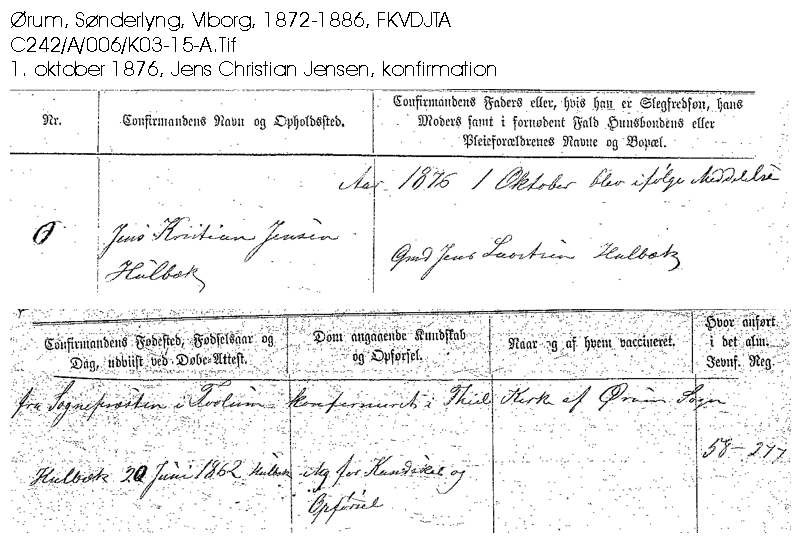 Ørum, Sønderlyng, Viborg, 1872-1886, FKVDJTA
C242/A/006/K03-15-A.Tif
1. oktober 1876, Jens Christian Jensen, konfirmation
Nr.
Confirmandens Navn og Opholdssted.
Confirmandens Faders eller, hvis han er Slegfredsøn, hans
Moders samt i fornødent Fald Huusbondens eller
Pleieforældrenes Navne og Bopæl.
Aar 1876 1 Oktober blev ifølge Meddelelse
Jens Kristian Jensen
Hulbæk
Gmd Jens Hulbæk
Confirmandens Fødested, Fødselsaar og
Dag, udviist ved Døbe-Attest.
Dom angaaende Kundskab
og Opførsel.
Naar og af hvem vaccineret.
Hvor anført
i det alm.
Jevnf. Reg.
fra Sognepræsten i konfirmeret i Kirke af Ørum Sogn
58-
Hulbæk 20 Juni 1862 Hulbæk
mg for Kundskab og
Opførsel